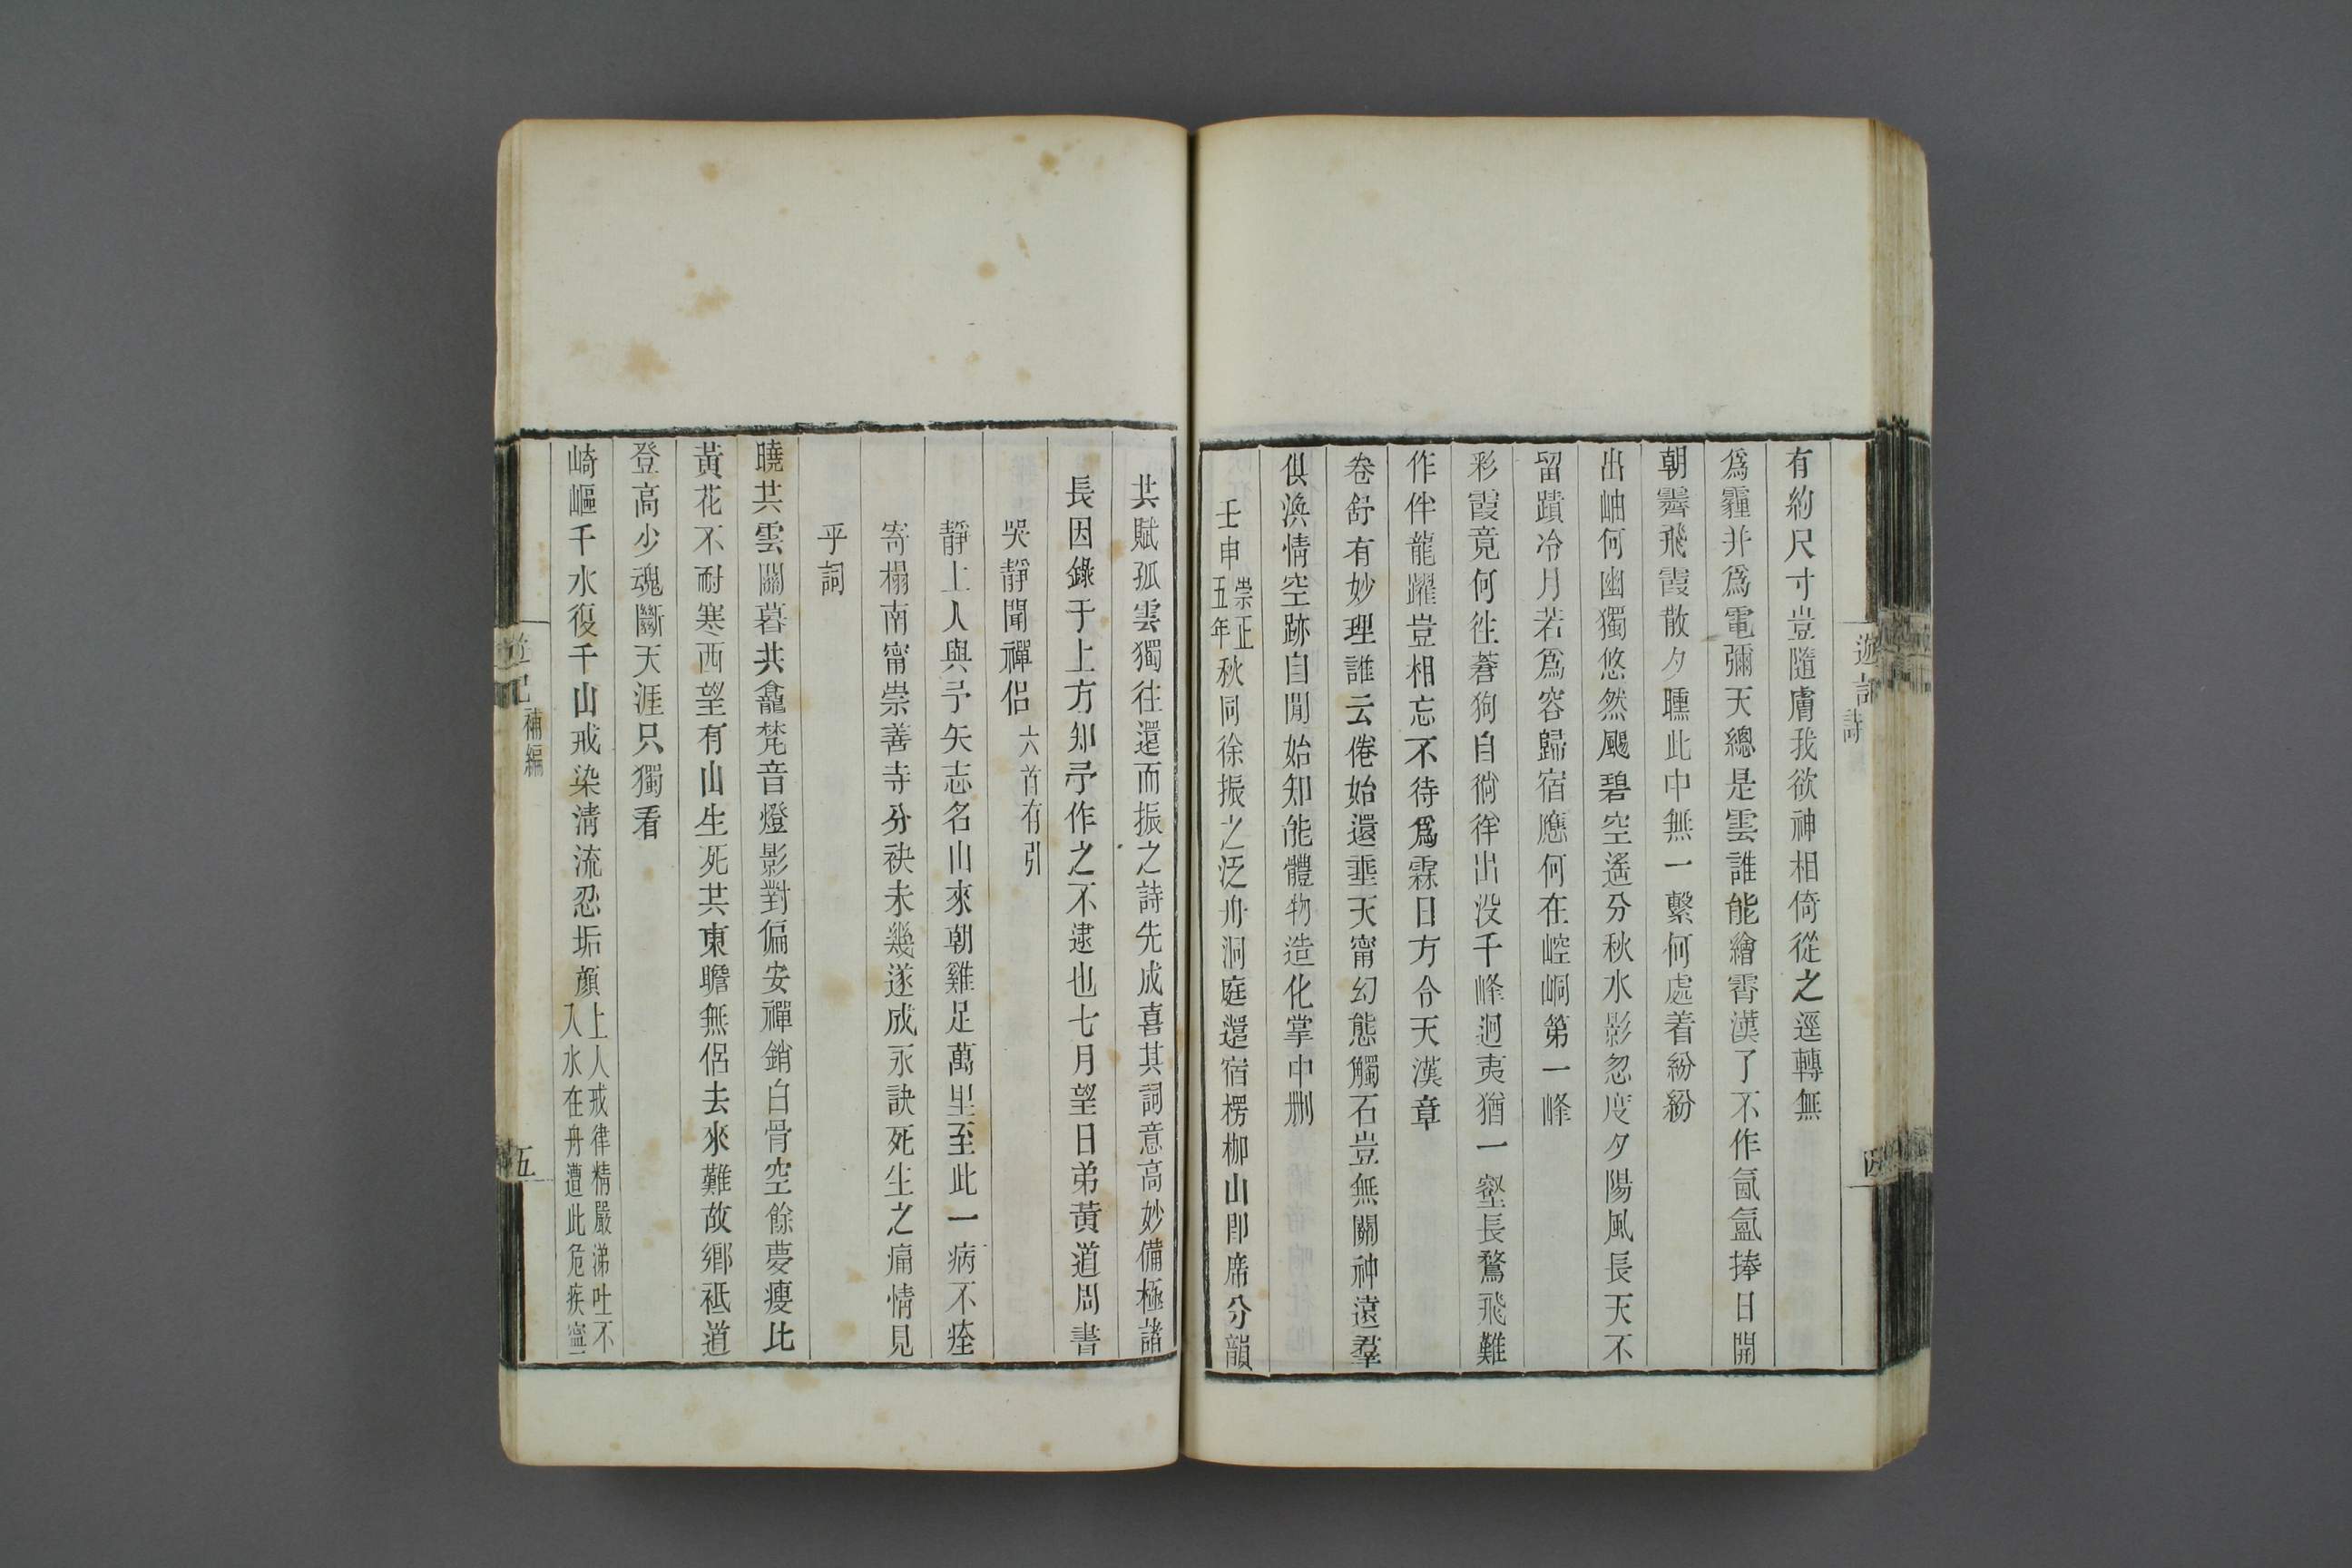 遊記
詩
四
有約尺寸豈隨膚我欲神相倚從之逕轉無
爲霾并爲電彌天總是雲誰能繪霄漢了不作氤氳捧日開
朝霽飛霞散夕曛此中無一繫何處着紛紛
出岫何幽獨悠然颺碧空遙分秋水影忽度夕陽風長天不
留蹟冷月若爲容歸宿應何在崆峒第一峰
彩霞竟何徃蒼狗自徜徉出没千峰迥夷猶一壑長鶩飛難
作伴龍躍豈相忘不待爲霖日方令天漢章
卷舒有妙理誰云倦始還垂天甯幻態觸石豈無關神遠羣
俱渙情空跡自閒始知能體物造化掌中刪
壬申崇正五年秋同徐振之泛舟洞庭還宿楞枷山卽席分韻
共賦孤雲獨往還而振之詩先成喜其詞意高妙備極諸
長因錄于上方知予作之不逮也七月望日弟黃道周書
哭靜聞禪侶六首有引
靜上人與予矢志名山來朝雞足萬里至此一病不痊
寄榻南甯崇善寺分袂未幾遂成永訣死生之痛情見
乎詞
曉共雲關暮共龕梵音燈影對偏安禪銷白骨空餘夢瘦比
黃花不耐寒西望有山生死共東瞻無侶去來難故鄉祗道
登高少魂斷天涯只獨看
崎嶇千水復千山戒染清流忍垢顔上人戒律精嚴涕吐不
入水在舟遭此危疾寧
遊記
補編
五